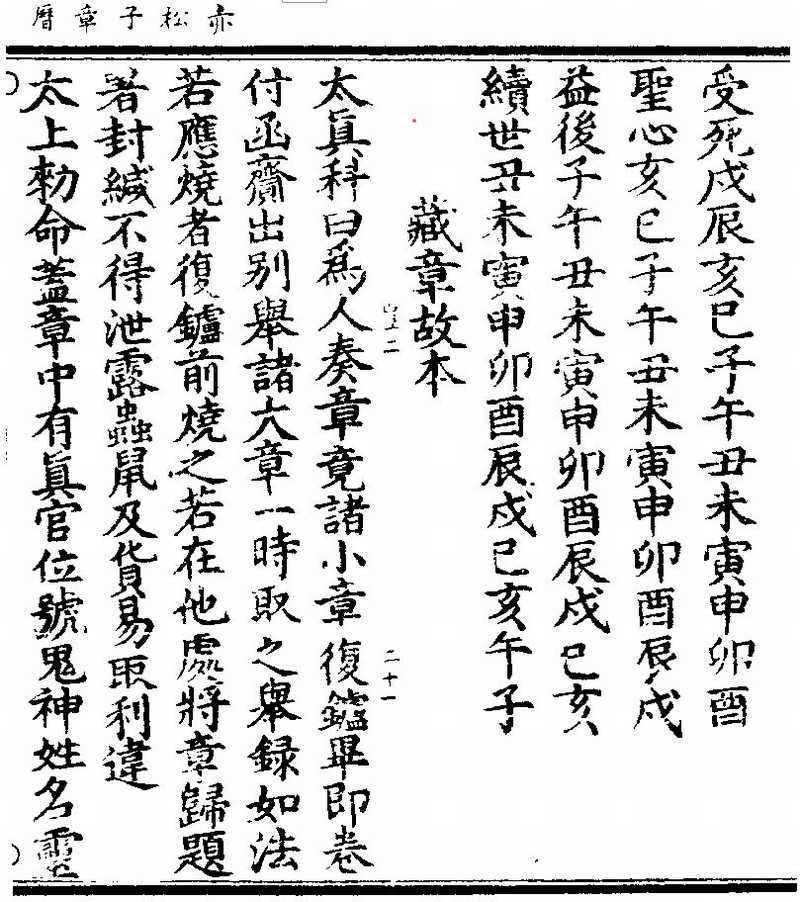 赤松子章曆
受死戌辰亥巳子午丑未寅申卯酉
聖心亥巳子午丑未寅申卯酉辰戌
益後子午丑未寅申卯酉辰戌巳亥
續世丑未寅申卯酉辰戌巳亥午子
藏章故本
二
二十一
太眞科曰爲人奏章竟諸小章復鑪畢即卷
付函齎出别舉諸大章一時取之舉録如法
若應燒者復鑪前燒之若在他處將章歸題
署封緘不得泄露蟲鼠及貨易取利違
太上勑命蓋章中有眞官位號鬼神姓名靈